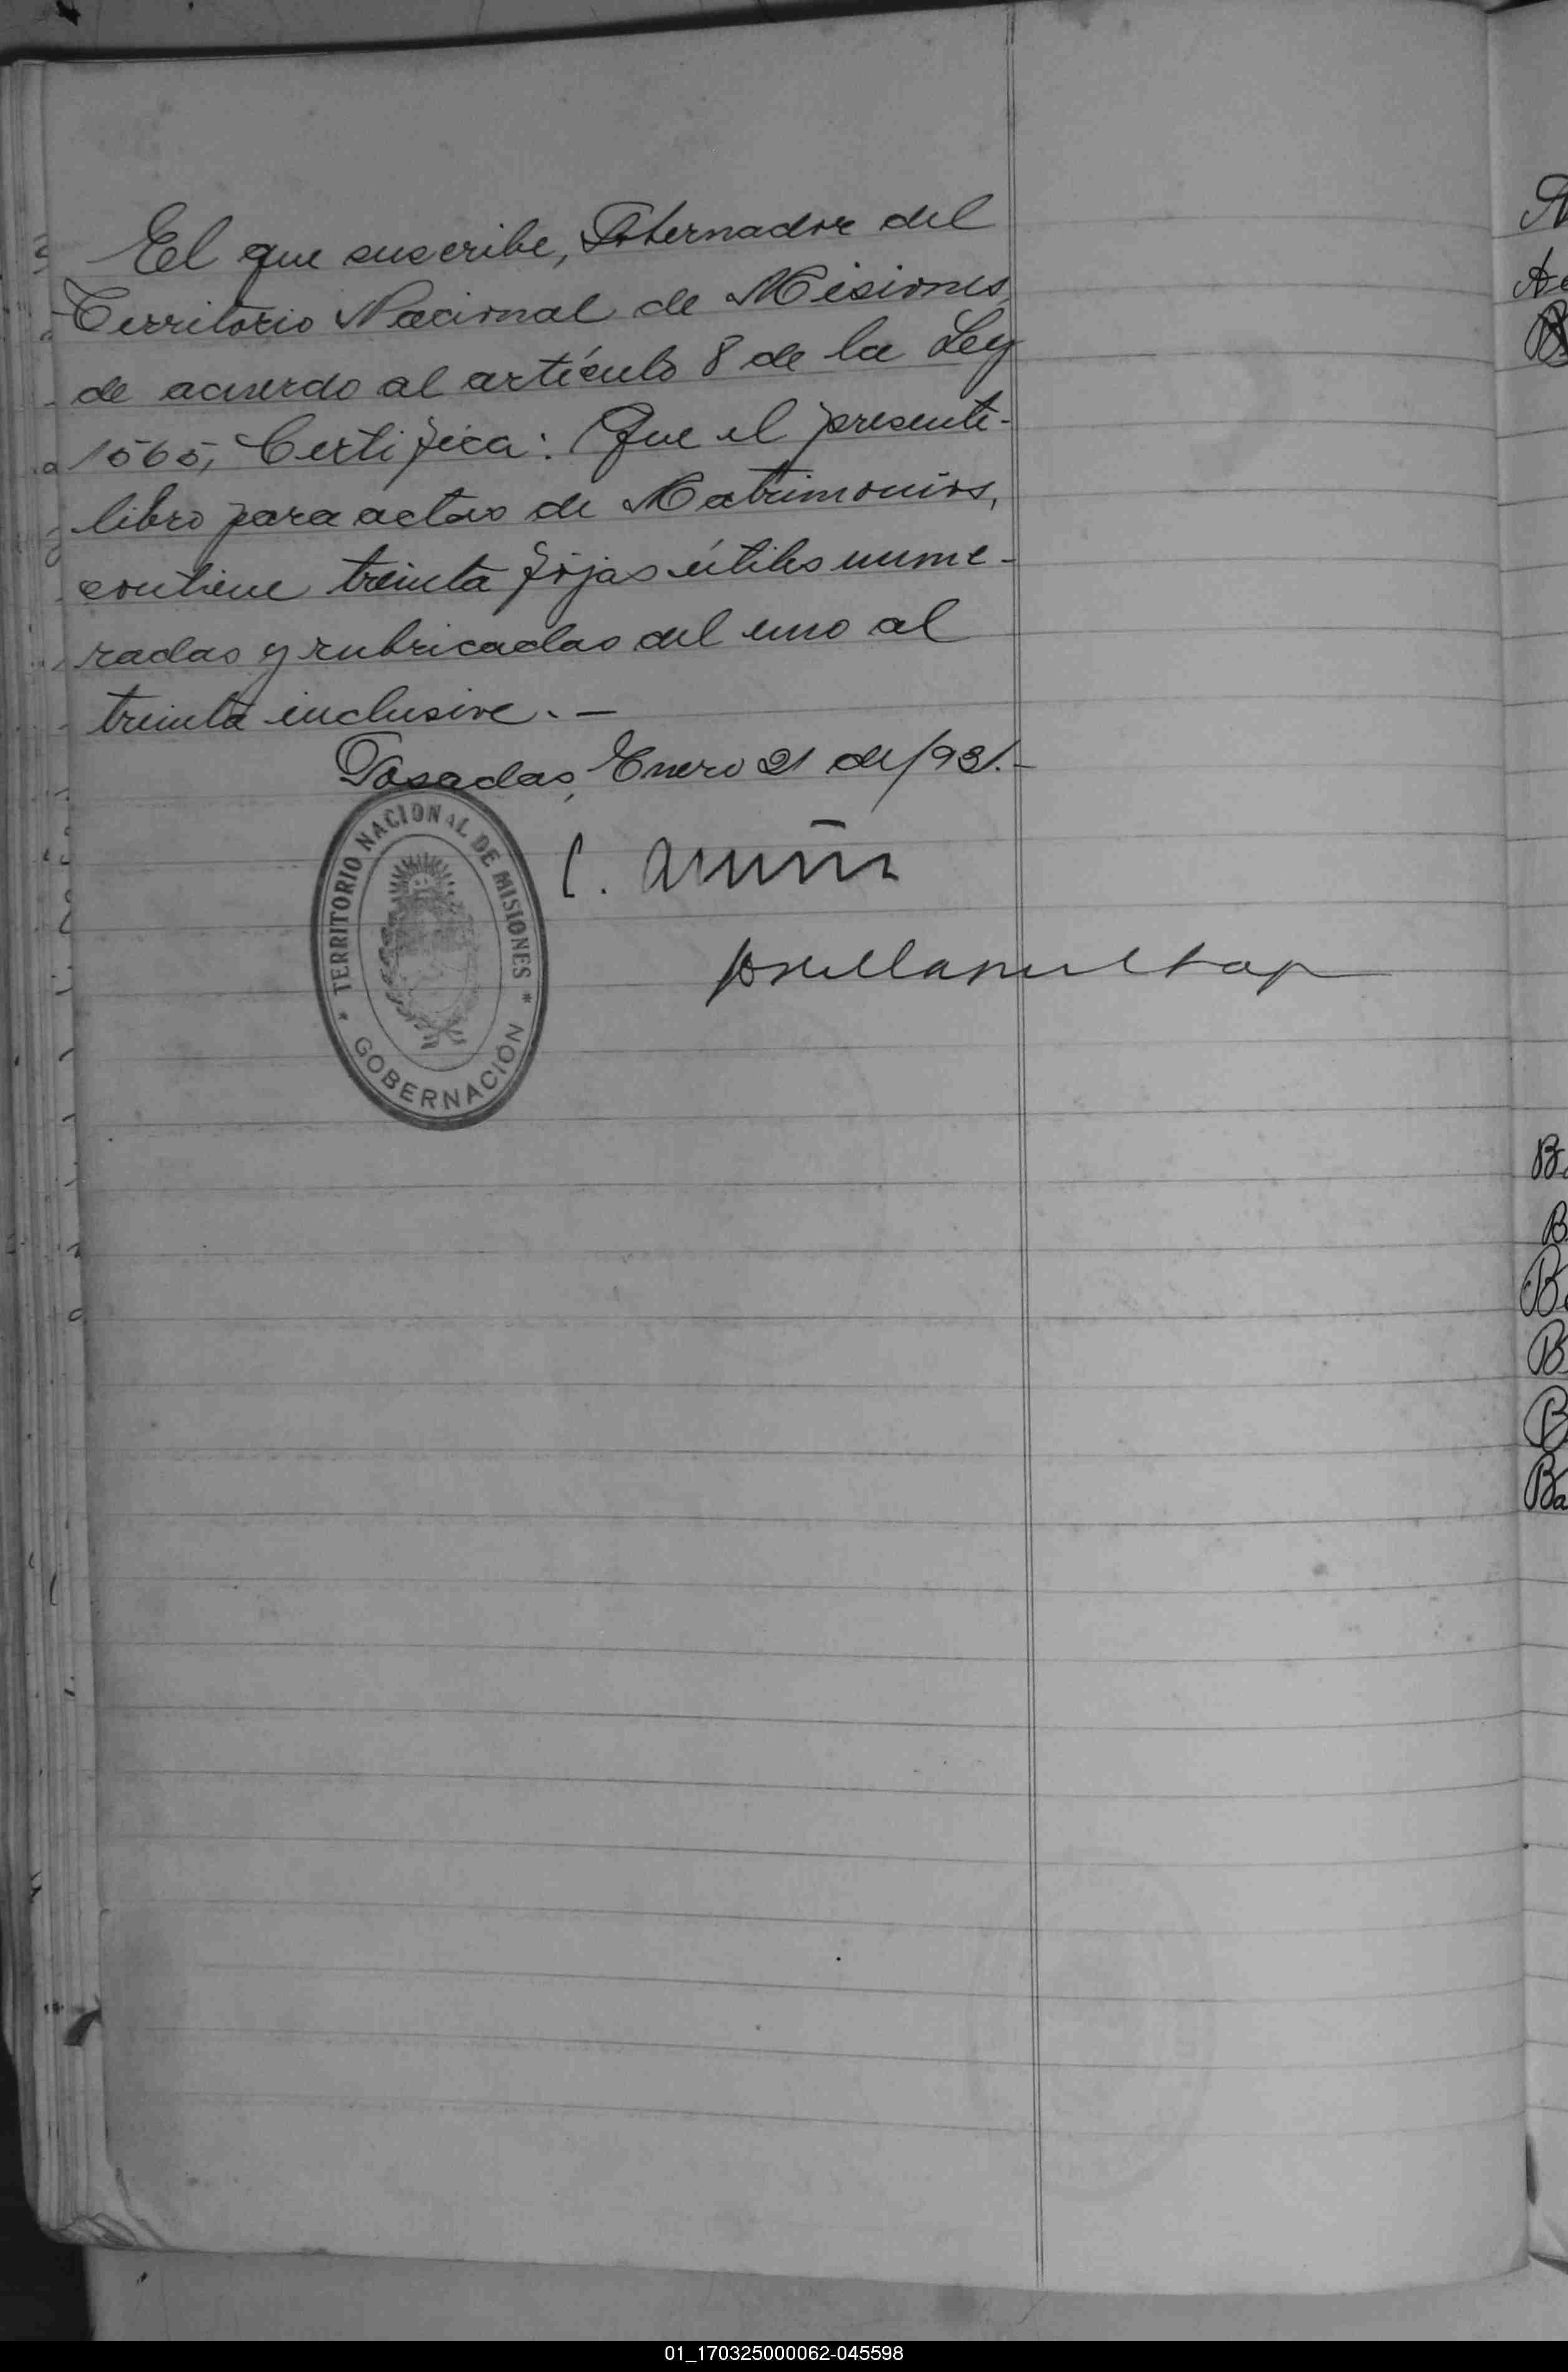 El que suscribe, Gobernador del
Territorio Nacional de Misiones,
de acuerdo al artículo 8 de la Ley
1565, Certifica: Que el presente
libro para actas de Matrimonios,
contiene treinta fojas útiles nume-
radas y rubricadas del uno al
treinta inclusive. —
Posadas, Enero 21 de 1931.—
TERRITORIO NACIONAL DE MISIONES
GOBERNACIÓN
C.
01_170325000062-045598